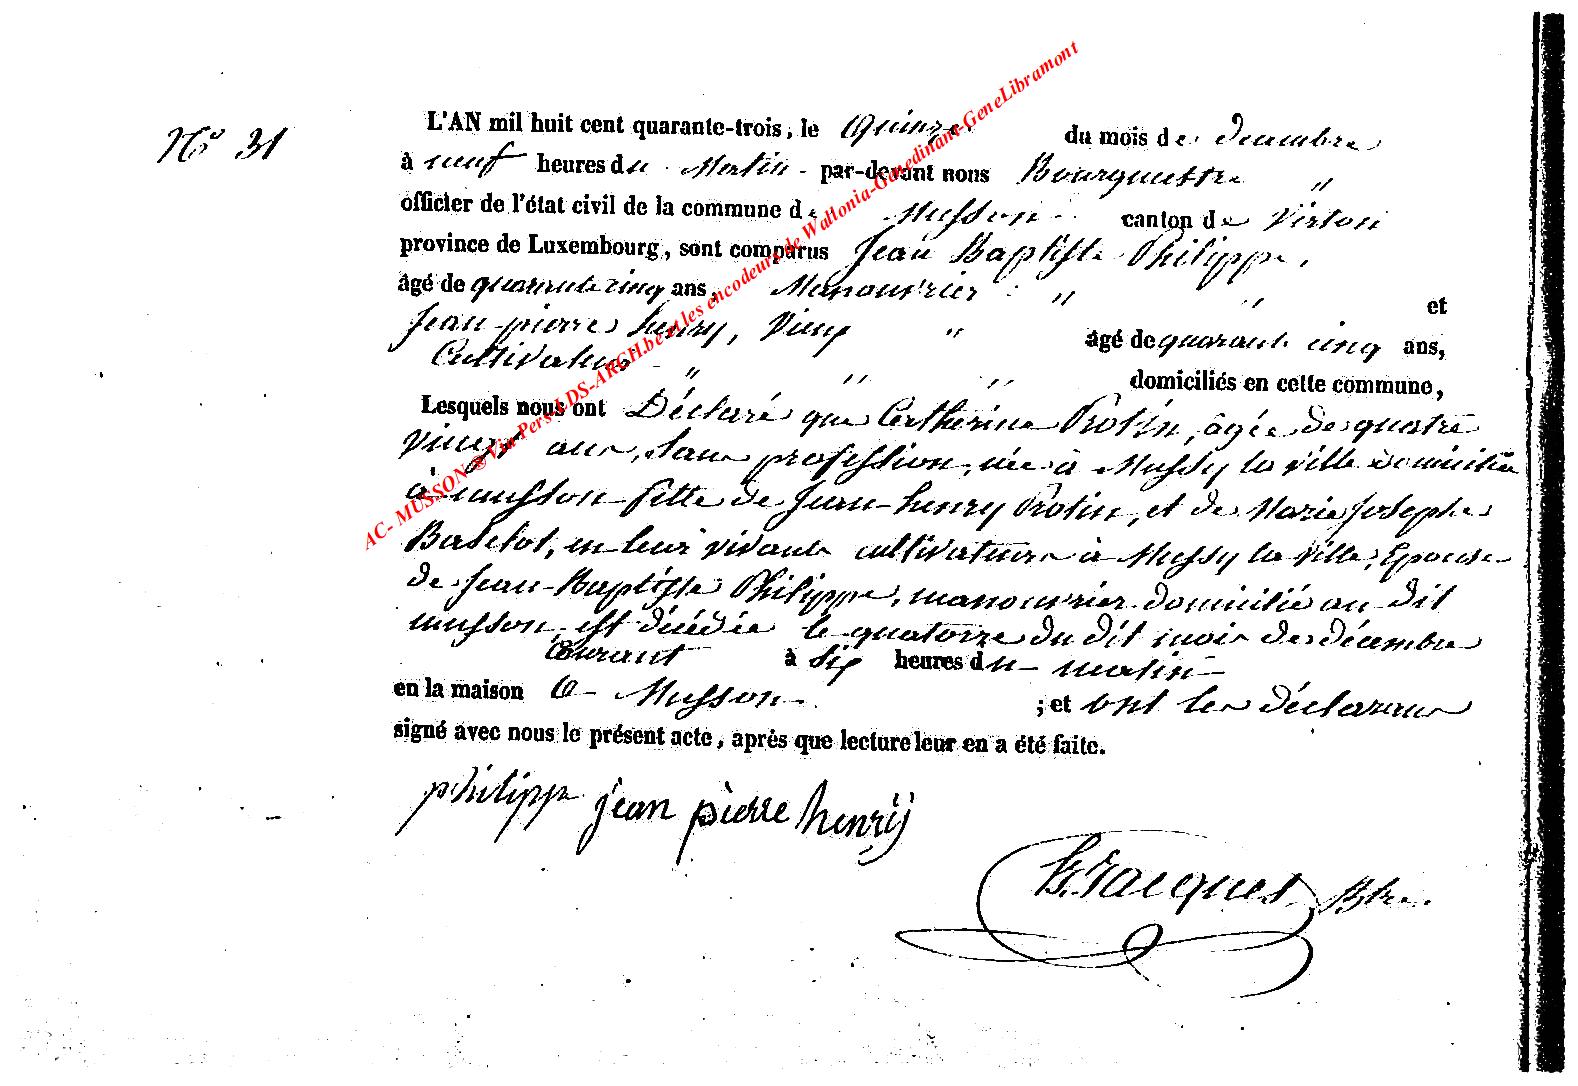 N° 31
L'AN mil huit cent quarante-trois, le Quinze du mois de decembre
à neuf heures du Matin par-devant nous Bourguestre "
officier de l'état civil de la commune de Musson canton de Virton
province de Luxembourg, sont comparus Jean Baptiste Philippe,
âgé de quarante cinq ans, Manouvrier " " et
Jean-pierre henry, Vieux " âgé de quarante cinq ans,
Cultivateur " " " domiciliés en cette commune,
Lesquels nous ont Déclaré que Catherine Protin, agée de quatre
vingt ans, sans profession, née à Mussy la ville domiciliée
à musson fille de Jean-henry Protin, et de Marie Josephe
Baselot, en leur vivants cultivateurs à Mussy la ville, Epouse
de Jean-Baptiste Philippe, manouvrier domicilié au dit
musson, est décédée le quatorze du dit mois de décembre
Courant à six heures du matin
en la maison à Musson ; et ont les déclarans
signé avec nous le présent acte, après que lecture leur en a été faite.
philippe jean pierre henrij
Jacques Btre.
AC- MUSSON ® Via Pers-LDS-ARGH.be et les encodeurs de Wallonia-Genedinant-GeneLibramont